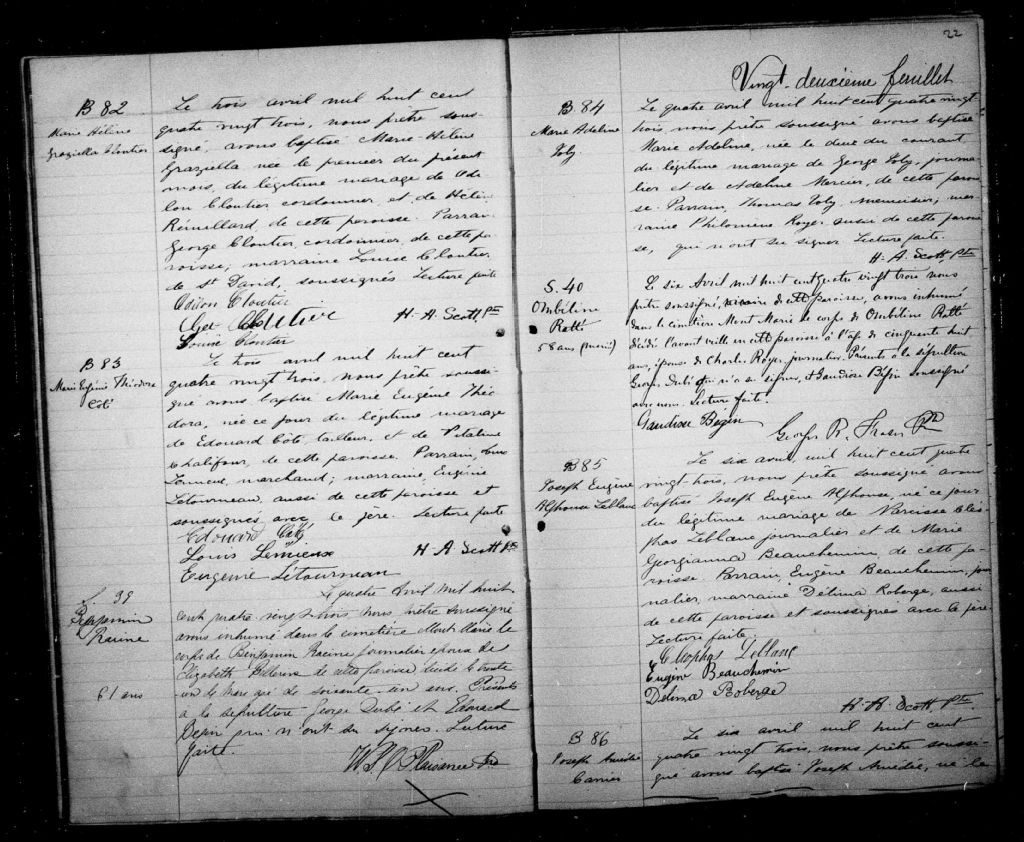 B 82
Marie Hélène
Graziella Cloutier
Le trois avril mil huit cent
quatre vingt trois, nous prêtre sous-
signé, avons baptisé Marie Hélène
Graziella née le premier du présent
mois, du légitime mariage de Odi-
lon Cloutier cordonnier, et de Hélène
Rémillard, de cette paroisse. Parrain
George Cloutier, cordonnier, de cette pa-
roisse; marraine Louise Cloutier
de St David, soussignés Lecture faite
Odilon Cloutier
Cloutier H. A. Scott, Ptre
Louise Cloutier
B 83
Marie Eugénie Théodora
Coté
Le trois avril mil huit cent
quatre vingt trois, nous prêtre soussi-
gné avons baptisé Marie Eugénie Théo-
dora, née ce jour du légitime mariage
de Edouard Coté, tailleur, et de
Chalifour, de cette paroisse. Parrain, Louis
Lemieux, marchand; marraine, Eugénie
Létourneau, aussi de cette paroisse et
soussignés avec le père. Lecture faite
Edouard Coté
Louis Lemieux H. A Scott Ptre
Eugenie Létourneau
S. 39
Benjamin
Racine
61 ans
Le quatre Avril mil huit
cent quatre vingt trois nous prêtre soussigné
avons inhumé dans le cimetière Mont Marie le
corps de Benjamin Racine journalier époux de
Elizabeth de cette paroisse décédé le trente
un de Mars agé de soixante-un ans. Présents
a la sépulture George Dubé et Edouard
Bepin qui n'ont su signer. Lecture
faite.
Plaisance Ptre
22
Vingt-deuxième feuillet
B 84
Marie Adeline
Joly
Le quatre avril mil huit cent quatre vingt-
trois, nous prêtre soussigné avons baptisé
Marie Adeline, née le deux du courant
du légitime mariage de George Joly, journa-
lier et de Adeline Mercier, de cette parois-
se. Parrain, Thomas Joly, menuisier, mar-
raine Philomène Royer aussi de cette parois-
se, qui n'ont su signer Lecture faite.
H. A. Scott Ptre
S. 40
Ombéline
Ratté
58 ans (mariée)
Le six Avril mil huit cent quatre vingt trois nous
prêtre soussigné, vicaire de cette paroisse, avons inhumé
dans le cimetière Mont Marie le corps de Ombéline Ratté
décédée l'avant veille en cette paroisse à l'âge de cinquante huit
ans, épouse de Charles Royer, journalier. Présents à la sépulture
George Dubé qui n'a su signer, et Gaudiose Bégin soussigné
avec nous. Lecture faite.
Gaudiose Bégin
George R. Fraser Ptre
B 85
Joseph Eugène
Alphonse Leblanc
Le six avril, mil huit cent quatre
vingt-trois, nous prêtre soussigné avons
baptisé Joseph Eugène Alphonse, né ce jour
du légitime mariage de Narcisse Cléo-
phas Leblanc journalier et de Marie
Georgianna Beauchemin, de cette pa-
roisse Parrain, Eugène Beauchemin, jour-
nalier, marraine Délima Roberge, aussi
de cette paroisse et soussignés avec le père
Lecture faite.
Cleophas Leblanc
Eugène Beauchemin
Delima Roberge
H. A. Scott Ptre.
B 86
Joseph Amédée
Carrier
Le six avril mil huit cent
quatre vingt trois, nous prêtre soussi-
gné avons baptisé Joseph Amédée, né le